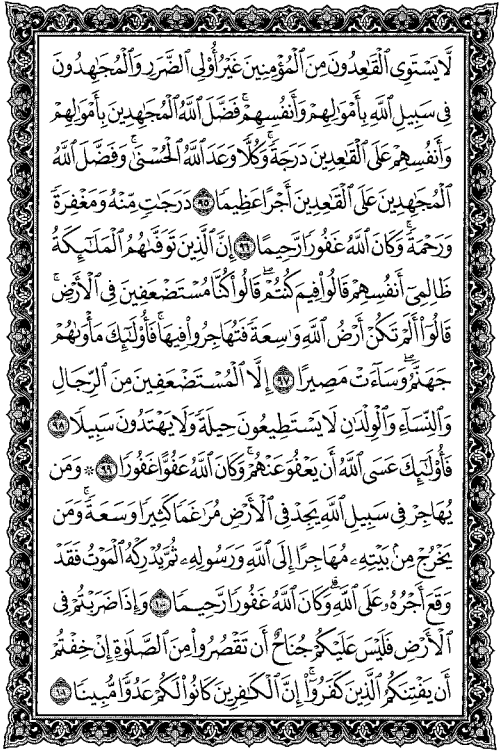 لَّا يَسْتَوِى ٱلْقَـٰعِدُونَ مِنَ ٱلْمُؤْمِنِينَ غَيْرُ أُو۟لِى ٱلضَّرَرِ وَٱلْمُجَـٰهِدُونَ
فِى سَبِيلِ ٱللَّهِ بِأَمْوَٰلِهِمْ وَأَنفُسِهِمْ ۚ فَضَّلَ ٱللَّهُ ٱلْمُجَـٰهِدِينَ بِأَمْوَٰلِهِمْ
وَأَنفُسِهِمْ عَلَى ٱلْقَـٰعِدِينَ دَرَجَةً ۚ وَكُلًّا وَعَدَ ٱللَّهُ ٱلْحُسْنَىٰ ۚ وَفَضَّلَ ٱللَّهُ
ٱلْمُجَـٰهِدِينَ عَلَى ٱلْقَـٰعِدِينَ أَجْرًا عَظِيمًا ٩٥ دَرَجَـٰتٍ مِّنْهُ وَمَغْفِرَةً
وَرَحْمَةً ۚ وَكَانَ ٱللَّهُ غَفُورًا رَّحِيمًا ٩٦ إِنَّ ٱلَّذِينَ تَوَفَّىٰهُمُ ٱلْمَلَـٰٓئِكَةُ
ظَالِمِىٓ أَنفُسِهِمْ قَالُوا۟ فِيمَ كُنتُمْ ۖ قَالُوا۟ كُنَّا مُسْتَضْعَفِينَ فِى ٱلْأَرْضِ ۚ
قَالُوٓا۟ أَلَمْ تَكُنْ أَرْضُ ٱللَّهِ وَٰسِعَةً فَتُهَاجِرُوا۟ فِيهَا ۚ فَأُو۟لَـٰٓئِكَ مَأْوَىٰهُمْ
جَهَنَّمُ ۖ وَسَآءَتْ مَصِيرًا ٩٧ إِلَّا ٱلْمُسْتَضْعَفِينَ مِنَ ٱلرِّجَالِ
وَٱلنِّسَآءِ وَٱلْوِلْدَٰنِ لَا يَسْتَطِيعُونَ حِيلَةً وَلَا يَهْتَدُونَ سَبِيلًا ٩٨
فَأُو۟لَـٰٓئِكَ عَسَى ٱللَّهُ أَن يَعْفُوَ عَنْهُمْ ۚ وَكَانَ ٱللَّهُ عَفُوًّا غَفُورًا ٩٩ ۞ وَمَن
يُهَاجِرْ فِى سَبِيلِ ٱللَّهِ يَجِدْ فِى ٱلْأَرْضِ مُرَٰغَمًا كَثِيرًا وَسَعَةً ۚ وَمَن
يَخْرُجْ مِنۢ بَيْتِهِۦ مُهَاجِرًا إِلَى ٱللَّهِ وَرَسُولِهِۦ ثُمَّ يُدْرِكْهُ ٱلْمَوْتُ فَقَدْ
وَقَعَ أَجْرُهُۥ عَلَى ٱللَّهِ ۗ وَكَانَ ٱللَّهُ غَفُورًا رَّحِيمًا ١٠٠ وَإِذَا ضَرَبْتُمْ فِى
ٱلْأَرْضِ فَلَيْسَ عَلَيْكُمْ جُنَاحٌ أَن تَقْصُرُوا۟ مِنَ ٱلصَّلَوٰةِ إِنْ خِفْتُمْ
أَن يَفْتِنَكُمُ ٱلَّذِينَ كَفَرُوٓا۟ ۚ إِنَّ ٱلْكَـٰفِرِينَ كَانُوا۟ لَكُمْ عَدُوًّا مُّبِينًا ١٠١